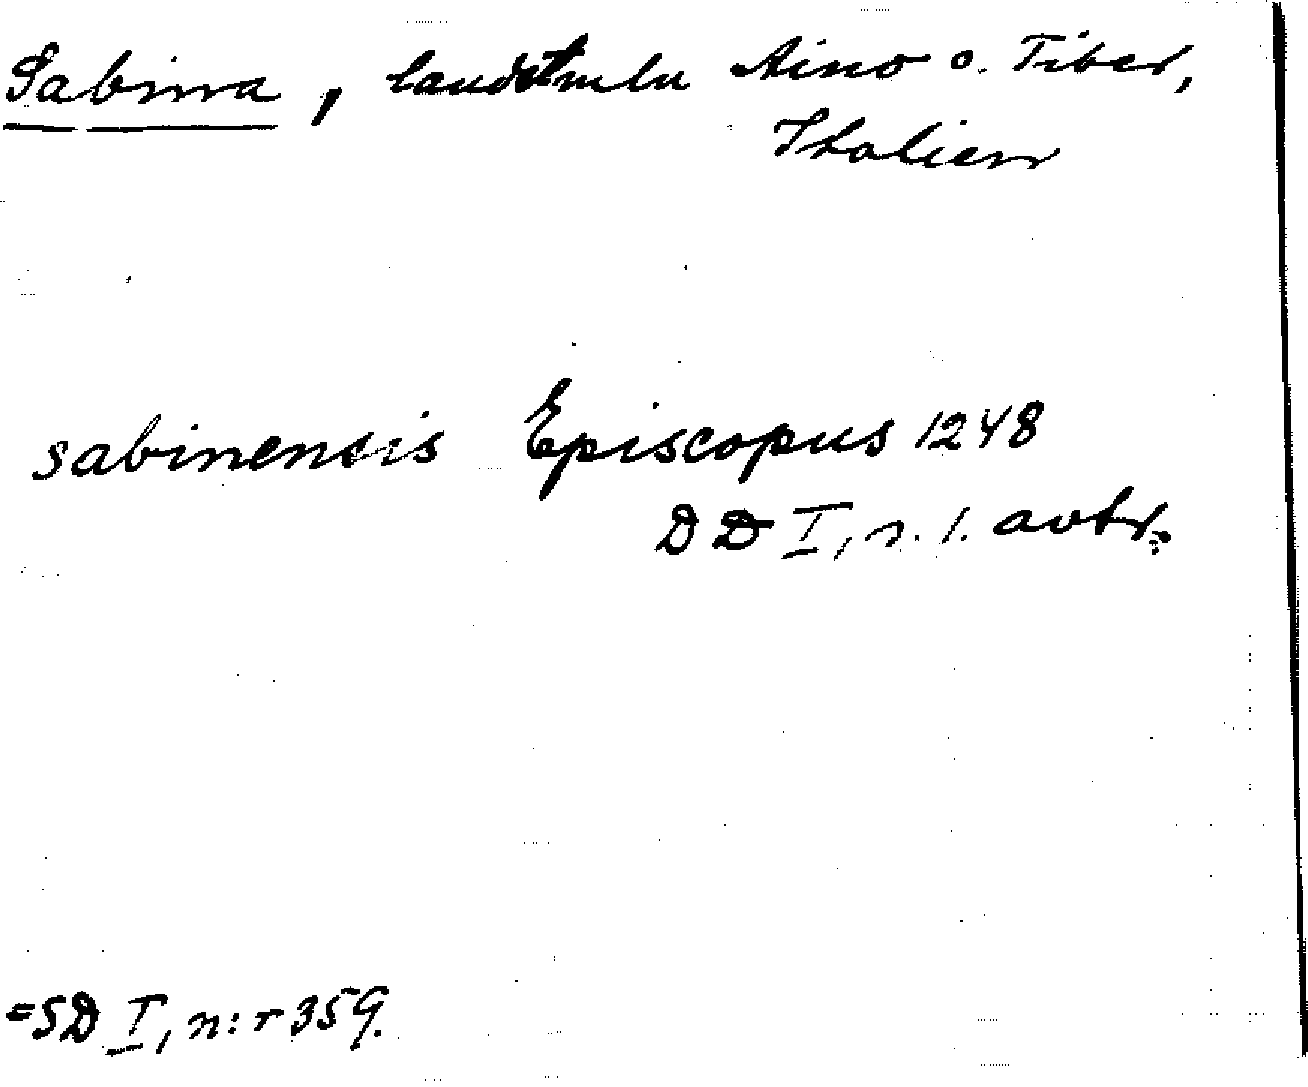 Sabina, landstr mln Aino o. Tiber,
Italien
sabinensis Episcopus 1248
DD I, n. 1. avtr.
=SD I, n:r 359.